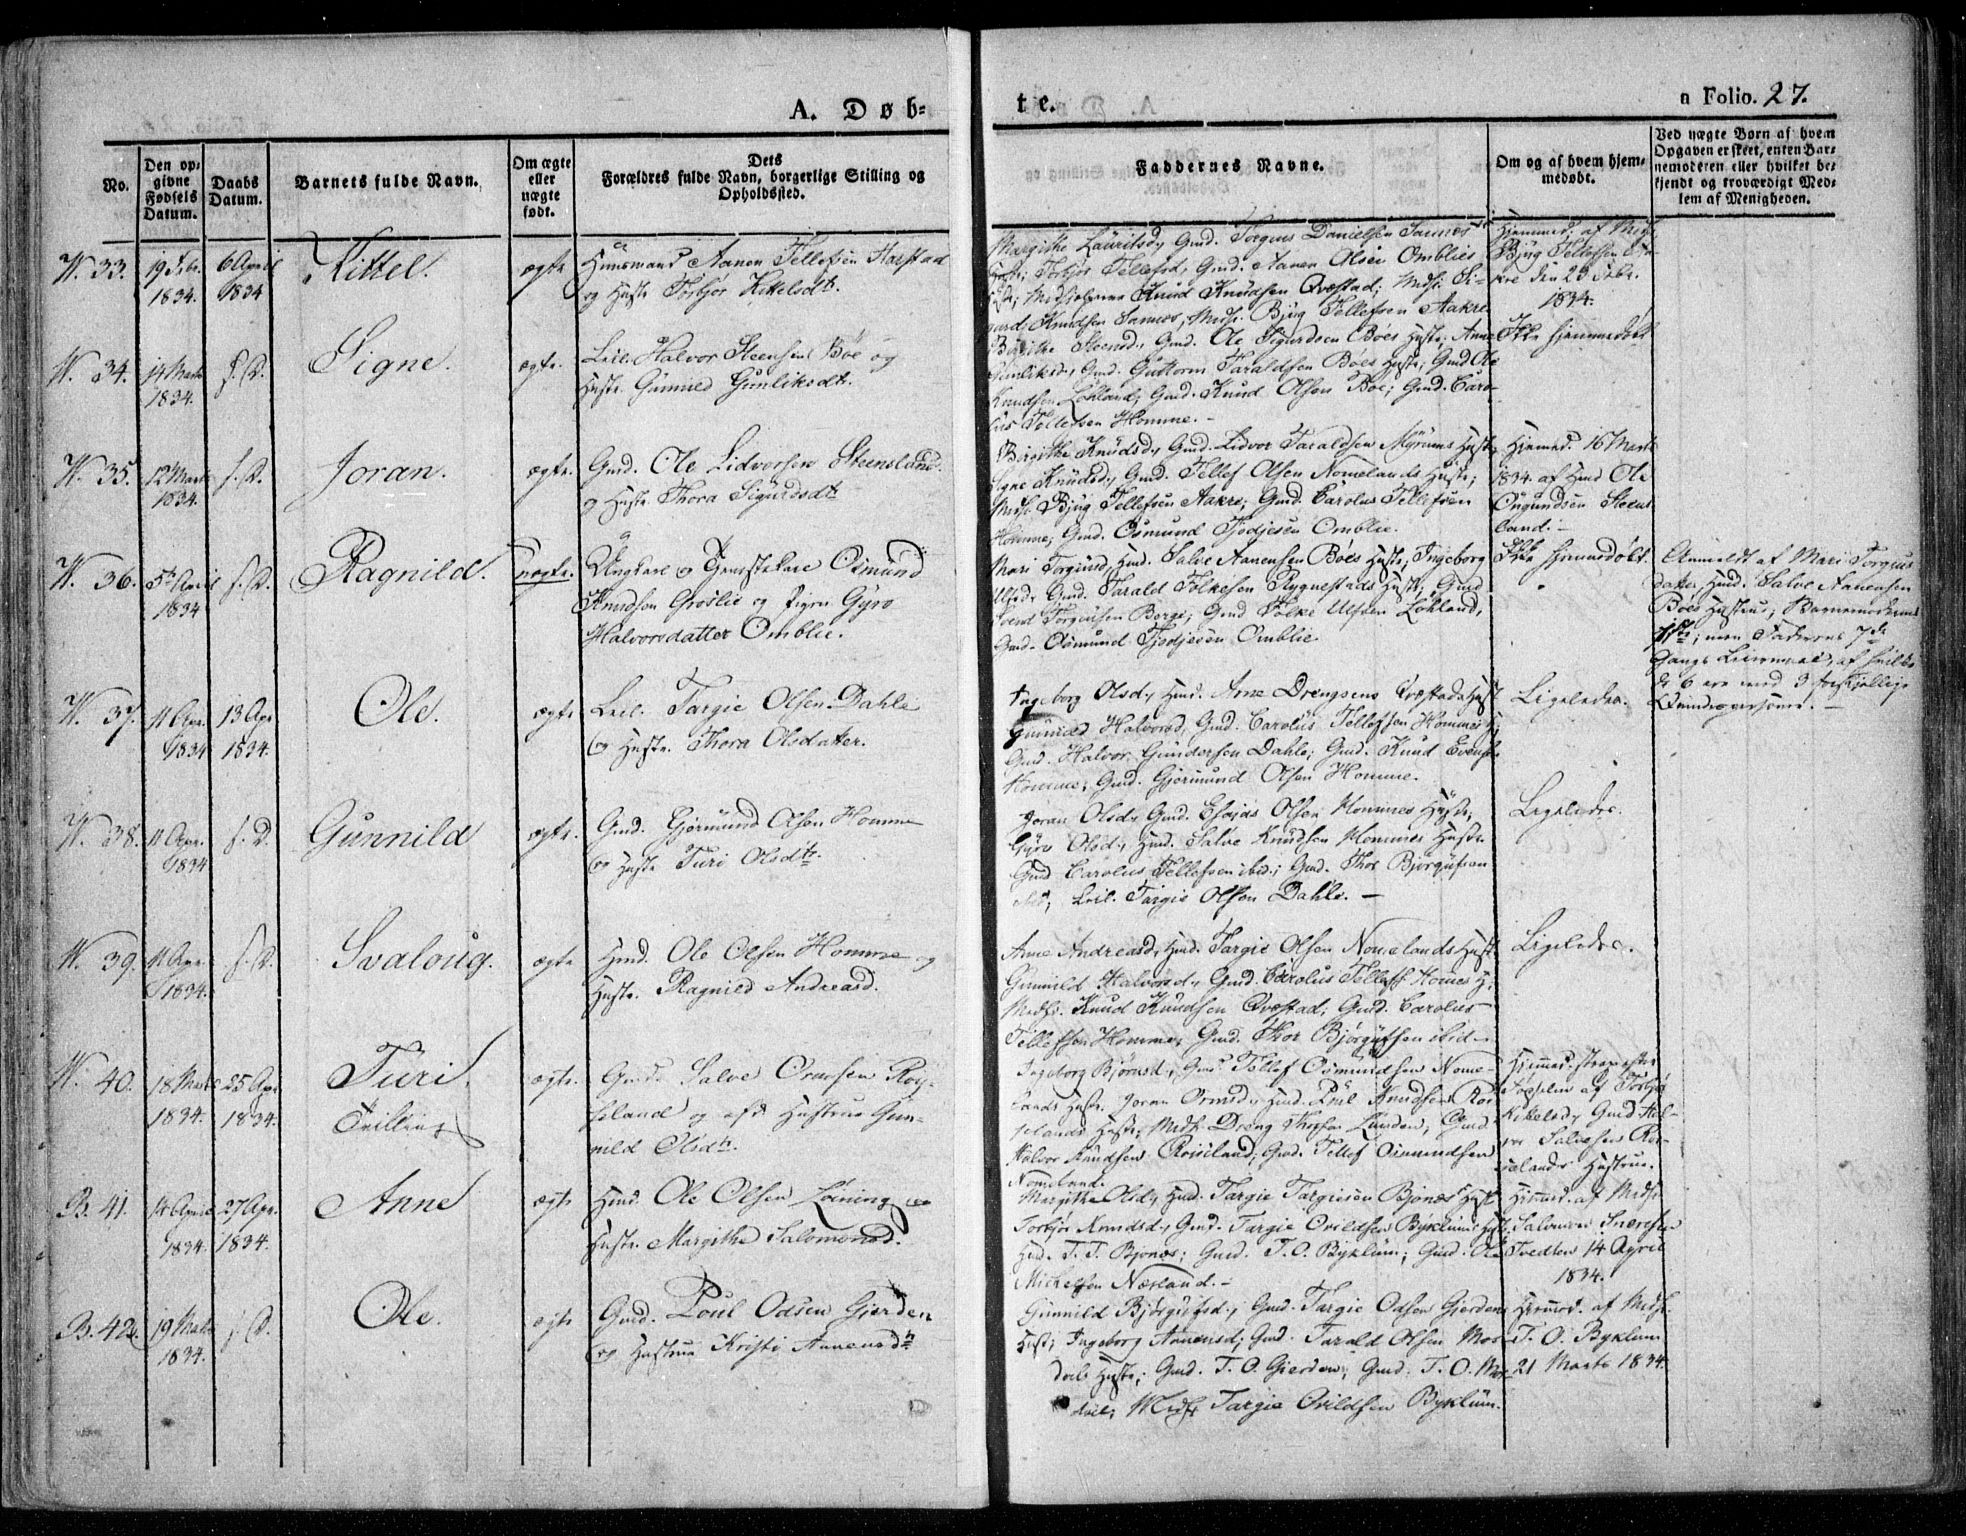 A. Døb=
te.
n Folio. 27.
No.
Den op=
givne
Fødsels
Datum.
Daabs
Datum.
Barnets fulde Navn.
Om ægte
eller
uægte
født.
Dets
Forældres fulde Navn, borgerlige Stilling og
Opholdssted.
Faddernes Navne.
Om og af hvem hjem=
medøbt.
Ved uægte Børn af hvem
Opgaven er skeet, enten Bar=
nemoderen eller hvilket be=
kjendt og troværdigt Med=
lem af Menigheden.
33.
19 Febr.
1834.
6 April
1834
Kittel.
ægte
Huusmand Aanen Tellefsen Harstad
og Hustr Torbjør Kittelsdtr.
Margithe Lauritsd., Gmd. Torgius Danielsen
Hustr; Torbjør Tellefsd, Gmd. Aanen Olsen Omblies
Hustr; Medhjelperne Knud Knudsen Qvæstad; Medhj. Si=
gurd Knudsen; Medhj. Bjug Tellefsen Aakre
Hjemmed. af Medhj.
Bjug Tellefsen Aa=
kre den 23 Febr.
1834.
34.
14 Marts
1834.
s. D.
Signe.
ægte.
Leil. Halvor Steensen Bøe og
Hustr. Gunnild Gunliksdtr.
Birgithe Steensd., Gmd. Ole Sigurdsen Bøes Hustr; Anne
Gunliksd., Gmd. Guttorm Taraldsen Bøes Hustr; Gmd Ole
Knudsen Løkland; Gmd. Knud Olsen Bøe; Gmd. Caro=
lus Tellefsen Homme. -
Ikke hjemmedøbt
35.
12 Marts
1834.
s. D.
Joran.
ægte.
Gmd. Ole Lidvorsen Steensland
og Hustr Thora Sigurdsdtr
Birgithe Knudsd., Gmd. Lidvor Taraldsen Myrums Hustr,
Signe Knudsd., Gmd. Tellef Olsen Nomelands Hustr;
Medhj. Bjug Tellefsen Aakre; Gmd. Carolus Tellefsen
Homme; Gmd. Osmund Tjodjesen Omblie.
Hjemmed. 16 Marts
1834. af Hmd Ole
Ougundsen Steens=
land. -
36.
5te April
1834
s. D.
Ragnild.
uægte.
Ungkarl og Tjenestekarl Osmund
Knudsen Groslie og Pigen Gyro
Halvorsdatter Omblie.
Mari Torgiusd, Hmd. Salve Aanensen Bøes Hustr, Ingeborg
Ulfsd, Gmd. Tarald Folkesen Rygnestads Hustr; Gmd
Svend Torgiusen Berge; Gmd Folke Ulfsen Løkland,
Gmd. Osmund Tjodjesen Omblie.
Ikke hjemmedøbt
Anmeldt af Mari Torgius
datter, Hmd. Salve Aanensen
Bøes Hustrue; Barnemoderens
1ste; men Faderens 7de
Gangs Leiermaal, af hvilke
de 6 ere med 3 forskjellige
Qvindepersoner. -
37.
11 Apr.
1834
13 Apr
1834.
Ole.
ægte
Leil. Targie Olsen Dahle
og Hustr. Thora Olsdatter.
Ingeborg Olsd., Hmd. Arne Drengsens Qvæstads Hustr
Gunnild Halvorsd, Gmd. Carolus Tellefsen Hommes H;
Gmd. Halvor Gundersen Dahle; Gmd. Knud Evens.
Homme; Gmd. Gjermund Olsen Homme.
Ligeledes.
38.
11 Apr.
1834
s. D.
Gunnild
ægte.
Gmd. Gjermund Olsen Homme
og Hustr Turi Olsdtr.
Joran Olsd, Gmd. Olsen Hommes Hustr;
Gyro Olsd., Hmd. Salve Knudsen Hommes Hustr.
Gmd Carolus Tellefsen ibid.; Gmd. Thor Bjørgufsen
ibid; Leil. Targie Olsen Dahle. -
Ligeledes.
39.
11 Apr.
1834.
s. D.
Svaloug.
ægte
Hmd. Ole Olsen Homme og
Hustr. Ragnild Andreasd.
Anne Andreasd, Hmd. Targie Olsen Nomelands Hustr
Gunnild Halvorsd., Gmd. Carolus Tellefs. Homes H;
Medhj. Knud Knudsen Qvæstad; Gmd. Carolus
Tellefsen Homme; Gmd. Thor Bjørgufsen ibid.
Ligeledes.
40.
18 Marts
1834.
25 Apr
1834.
Turi.
Tvilling
ægte.
Gmd. Salve Ormsen Roi=
seland og afd. Hustrue Gun=
nild Olsdtr.
Ingeborg Bjørnsd., Gmd. Tellef Osmundsen Nome=
lands Hustr. Joran Ormsd., Hmd. Knudsen Roi
selands Hustr; Medhj. Dreng Lunden; Gmd
Halvor Knudsen Roiseland; Gmd. Tellef Osmundsen
Nomeland.
Hjemmed. strax efter
Fødselen af Torbjør
Kittelsd., Gmd. Hal=
vor Salvesen Roi=
selands Hustrue.
B. 41.
14 April
1834.
27 Apr.
1834.
Anne
ægte
Hmd. Ole Olsen Løining og
Hustr. Margithe Salomonsd.
Margithe Olsd., Hmd. Targie Targiesen Bjønes Hustr
Torbjør Knudsd., Gmd. Targie Ovildsen Byklums Hustr
Hmd. T. T. Bjønes; Gmd. T. O. Byklum; Gmd. Ole
Mickelsen Næsland. -
Hjemmed. af Medhj.
Salomon
Tvedten 14 April
1834.
B. 42.
19 Marts
1834.
s. D.
Ole.
ægte
Gmd. Poul Odsen Gjerden
og Hustrue Kristi Aanensdtr
Gunnild Bjørgufsd., Gmd. Targie Odsen Gjerdens
Hustr; Ingeborg Aanensd; Gmd. Tarald Olsen Mos=
døls Hustr; Gmd. T. O. Gjerden; Gmd. T. O. Mos=
døl; Medhj. Targie Ovildsen Byklum.
Hjemmed. af Medhj.
T. O. Byklum
21 Marts 1834.